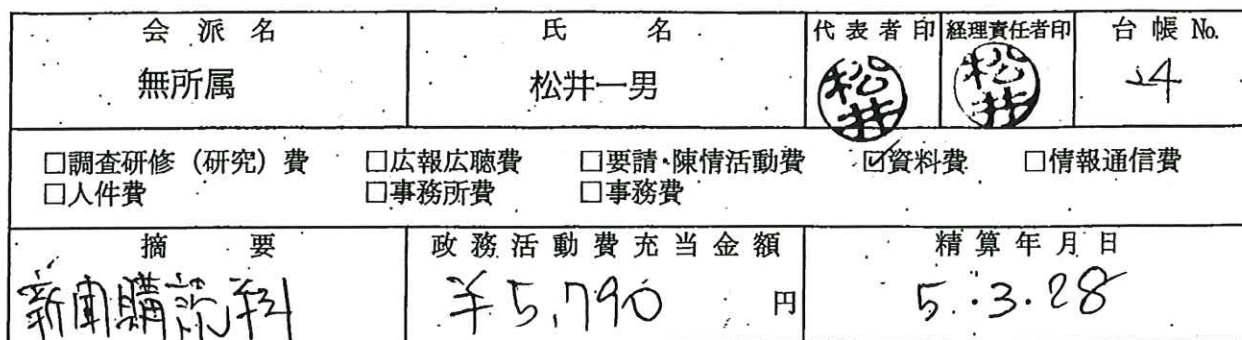 会派名 氏名 代表者印 経理責任者印 台帳No.
無所属 松井一男 松井 松井 24
□調査研修（研究）費 □広報広聴費 □要請・陳情活動費 ☑資料費 □情報通信費
□人件費 □事務所費 □事務費
摘要 政務活動費充当金額 精算年月日
新聞購読料 ¥5,790 円 5.3.28